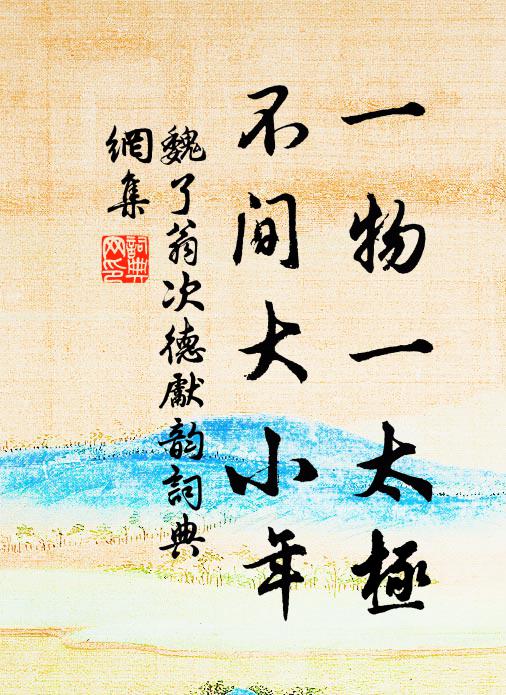 一物一太極
不間大小年
魏了翁次德獻韵詞典
網集
詞典網印